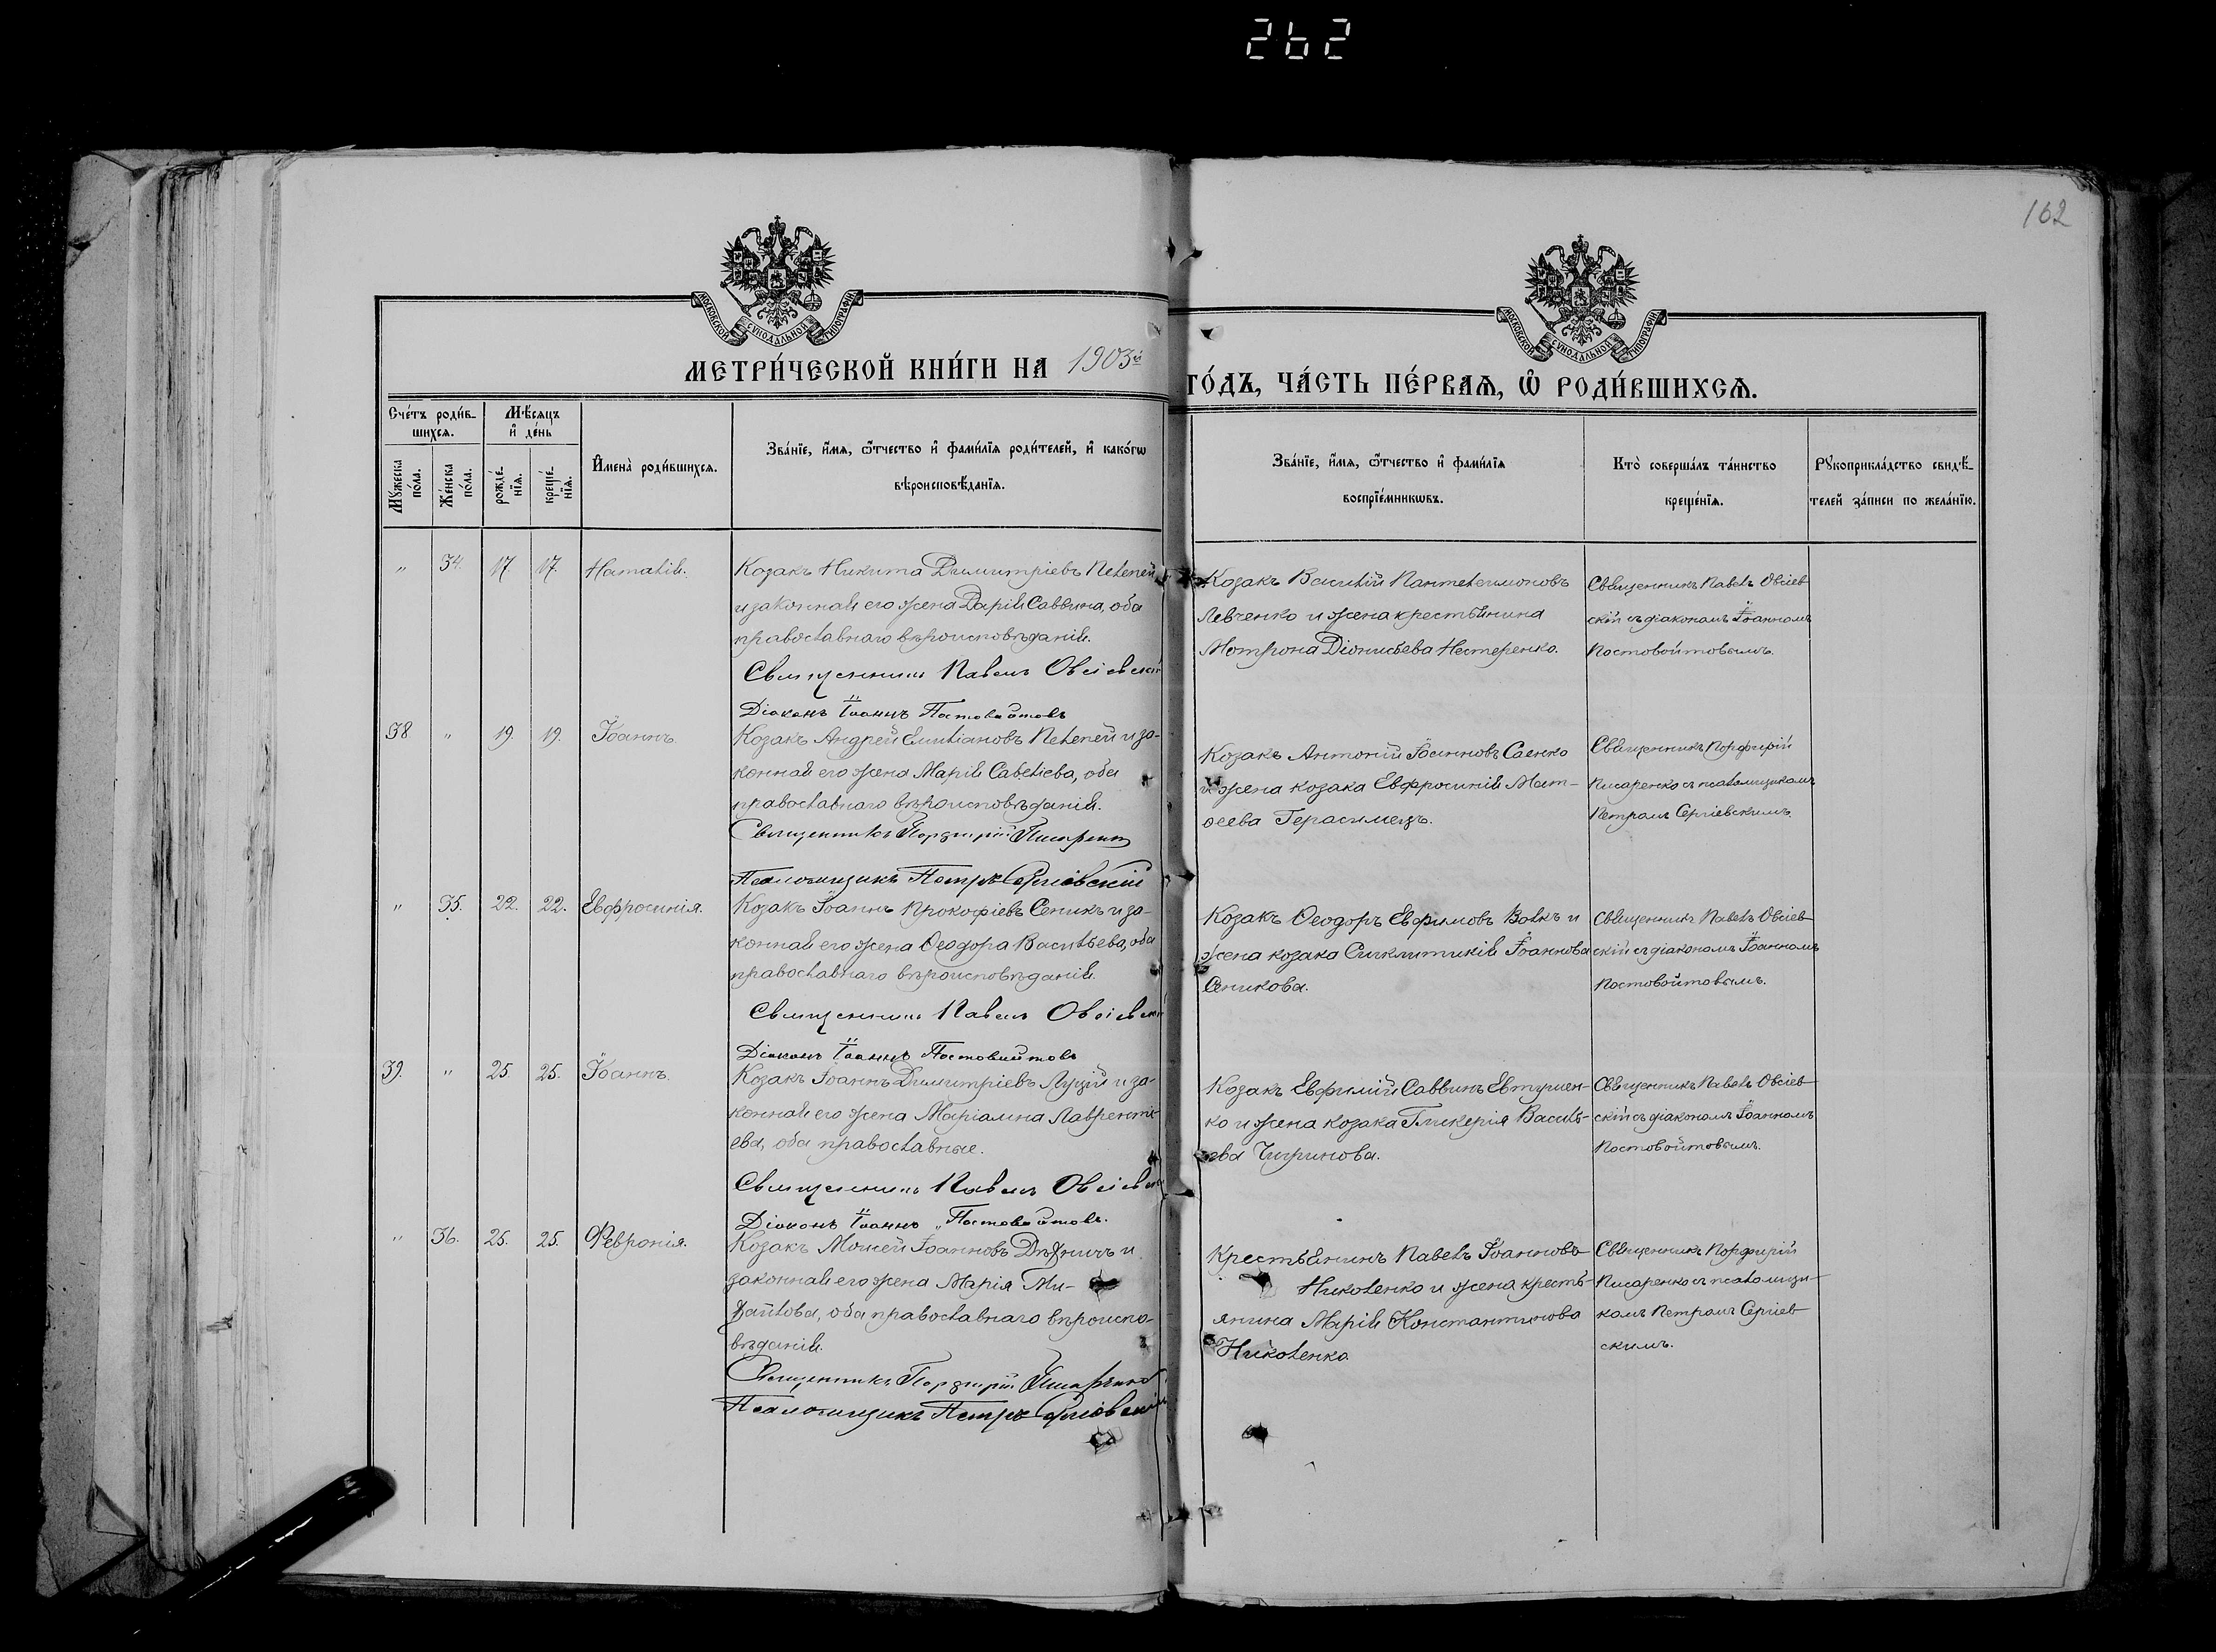 262
162
МОСКОВСКОЙ СѴНОДАЛЬНОЙ ТИПОГРАФІИ
МОСКОВСКОЙ СѴНОДАЛЬНОЙ ТИПОГРАФІИ
МЕТРИ́ЧЕСКОЙ КНИ́ГИ НА 1903й
ГО́ДЪ, ЧА́СТЬ ПЕ́РВАѦ, Ѡ҆ РОДИ́ВШИХСѦ.
Сче́тъ роди́в-
шихсѧ.
Мѣ́сѧцъ
и҆ де́нь
Мꙋ́жеска
по́ла.
Же́нска
по́ла.
рожде́-
нїѧ.
креще́-
нїѧ.
И҆мена̀ роди́вшихсѧ.
Зва́нїе, и҆́мѧ, ѻ҆́тчество и҆ фами́лїѧ роди́телей, и҆ како́гѡ
вѣроисповѣ́данїѧ.
Зва́нїе, и҆́мѧ, ѻ҆́тчество и҆ фами́лїѧ
воспрїе́мникѡвъ.
Кто̀ соверша́лъ та́инство
креще́нїѧ.
Рꙋкоприкла́дство свидѣ́-
телей за́писи по жела́нїю.
" 34. 17 17. Наталія.
Козакъ Никита Димитріевъ Пелепей
и законная его жена Дарія Саввина, оба
православнаго вѣроисповѣданія.
Священникъ Павелъ Овсіевскій
Діаконъ Іоаннъ Постовойтовъ
Козакъ Василій Пантелеимоновъ
Левченко и жена крестьянина
Мотрона Діонисьева Нестеренко.
Священникъ Павелъ Овсіев-
скій съ діакономъ Іоанномъ
Постовойтовымъ.
38 " 19. 19. Іоаннъ.
Козакъ Андрей Емиліановъ Пелепей и за-
конная его жена Марія Савеліева, оба
православнаго вѣроисповѣданія.
Священникъ Порфирій Писаренко
Псаломщикъ Петръ Сергіевскій
Козакъ Антоній Іоанновъ Саенко
и жена козака Евфросинія Мат-
ѳеева Герасимецъ.
Священникъ Порфирій
Писаренко съ псаломщикомъ
Петромъ Сергіевскимъ.
" 35. 22. 22. Евфросинія.
Козакъ Іоаннъ Прокофіевъ Сеникъ и за-
конная его жена Ѳеодора Васильева, оба
православнаго вѣроисповѣданія.
Священникъ Павелъ Овсіевскій
Діаконъ Іоаннъ Постовойтовъ
Козакъ Ѳеодоръ Евфимовъ Волкъ и
жена козака Синклитикія Іоаннова
Сеникова.
Священникъ Павелъ Овсіев-
скій съ діакономъ Іоанномъ
Постовойтовымъ.
39. " 25. 25. Іоаннъ.
Козакъ Іоаннъ Димитріевъ Луцій и за-
конная его жена Маріамна Лавренті-
ева, оба православные.
Священникъ Павелъ Овсіевскій
Діаконъ Іоаннъ Постовойтовъ.
Козакъ Евфимій Саввинъ Евтушен-
ко и жена козака Гликерія Василь-
ева Чигринова.
Священникъ Павелъ Овсіев-
скій съ діакономъ Іоанномъ
Постовойтовымъ.
" 36. 25. 25. Февронія.
Козакъ Моисей Іоанновъ и
законная его жена Марія Ми-
хайлова, оба православнаго вѣроиспо-
вѣданія.
Священникъ Порфирій Писаренко
Псаломщикъ Петръ Сергіевскій
Крестьянинъ Павелъ Іоанновъ
Николенко и жена кресть-
янина Марія Константинова
Николенко.
Священникъ Порфирій
Писаренко съ псаломщи-
комъ Петромъ Сергіев-
скимъ.